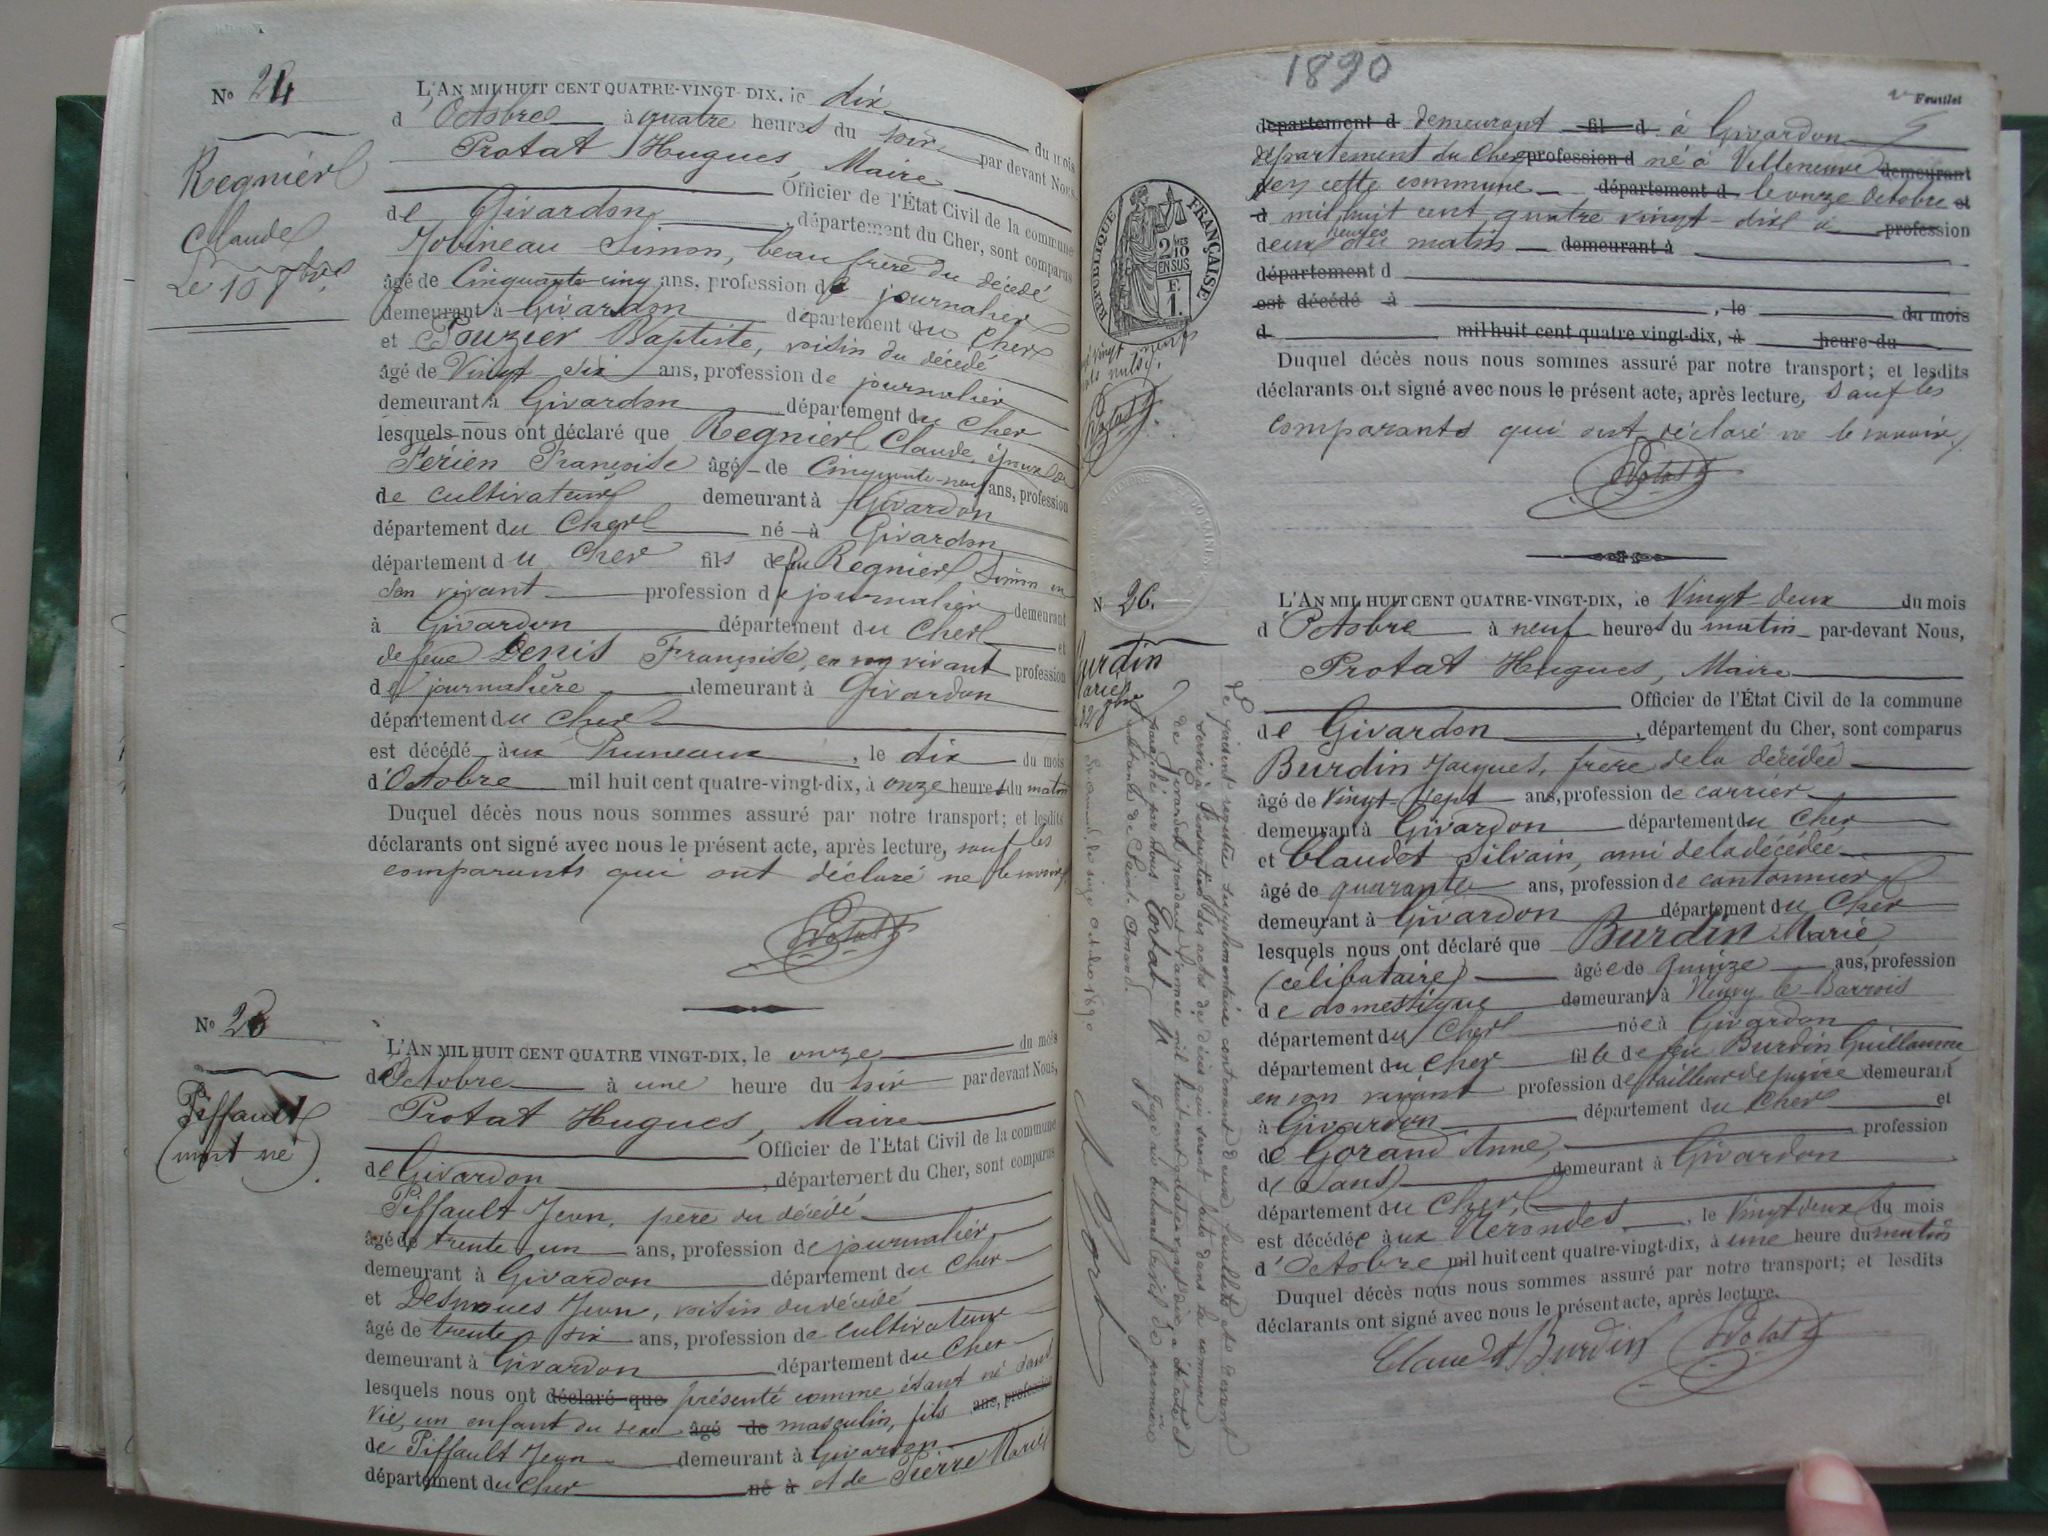 N° 24
Regnier
Claude
Le 10 8bre
L'AN MIL HUIT CENT QUATRE-VINGT-DIX, le dix du mois
d'Octobre à quatre heures du soir par devant Nous,
Protat Hugues, Maire
Officier de l'État Civil de la commune
de Givardon, département du Cher, sont comparus
Jobineau Simon, beau frère du décédé
âgé de Cinquante cinq ans, profession de journalier
demeurant à Givardon département du Cher
et Touzier Baptiste, voisin du décédé
âgé de Vingt six ans, profession de journalier
demeurant à Givardon département du Cher
lesquels nous ont déclaré que Regnier Claude, époux de
Férien Françoise âgé de Cinquante-neuf ans, profession
de cultivateur demeurant à Givardon
département du Cher né à Givardon
département du Cher fils de feu Regnier Simon en
son vivant profession de journalier demeurant
à Givardon département du Cher et
de feue Denis Françoise, en son vivant profession
de journalière demeurant à Givardon
département du Cher
est décédé aux Pruneaux, le dix du mois
d'Octobre mil huit cent quatre-vingt-dix, à onze heures du matin
Duquel décès nous nous sommes assuré par notre transport; et lesdits
déclarants ont signé avec nous le présent acte, après lecture, sauf les
comparants qui ont déclaré ne le savoir
Protat
N° 25
Piffault
(mort né).
L'AN MIL HUIT CENT QUATRE VINGT-DIX, le onze du mois
d'Octobre à une heure du soir par devant Nous,
Protat Hugues, Maire
Officier de l'Etat Civil de la commune
de Givardon, département du Cher, sont comparus
Piffault Jean, père du décédé
âgé de trente un ans, profession de journalier
demeurant à Givardon département du Cher
et Desnoues Jean, voisin du décédé
âgé de trente six ans, profession de cultivateur
demeurant à Givardon département du Cher
lesquels nous ont déclaré que présenté comme étant né sans
vie, un enfant du sexe âgé de masculin, fils ans, profession
de Piffault Jean demeurant à Givardon
département du Cher né à et de Pierre Marie
1890
Feuillet
département d demeurant fil d à Givardon
département du Cher profession d né à Villeneuve demeurant
d en cette commune département d le onze Octobre et
d mil huit cent quatre vingt-dix à profession
deux heures du matin demeurant à
département d
est décédé à , le du mois
d mil huit cent quatre vingt-dix, à heure du
Duquel décès nous nous sommes assuré par notre transport; et lesdits
déclarants ont signé avec nous le présent acte, après lecture, sauf les
comparants qui ont déclaré ne le savoir
Protat
RÉPUBLIQUE FRANÇAISE
2/10 EN SUS
F. 1.
vingt neuf
mots nuls
Protat
N 26.
Burdin
Marie
22 8bre
L'AN MIL HUIT CENT QUATRE-VINGT-DIX, le Vingt-deux du mois
d'Octobre à neuf heures du matin par-devant Nous,
Protat Hugues, Maire
Officier de l'État Civil de la commune
de Givardon, département du Cher, sont comparus
Burdin Jacques, frère de la décédée
âgé de Vingt-sept ans, profession de carrier
demeurant à Givardon département du Cher
et Claudet Silvain, ami de la décédée
âgé de quarante ans, profession de cantonnier
demeurant à Givardon département du Cher
lesquels nous ont déclaré que Burdin Marie
(célibataire) âgée de quinze ans, profession
de domestique demeurant à Neuvy le Barrois
département du Cher née à Givardon
département du Cher fille de feu Burdin Guillaume
en son vivant profession de tailleur de pierre demeurant
à Givardon département du Cher et
de Gorand Anne, profession
d (Sans) demeurant à Givardon
département du Cher
est décédée aux Nerondes, le Vingt deux du mois
d'Octobre mil huit cent quatre-vingt-dix, à une heure du matin
Duquel décès nous nous sommes assuré par notre transport; et lesdits
déclarants ont signé avec nous le présent acte, après lecture.
Claudet Burdin Protat
Le présent registre supplémentaire contenant deux feuillets et devant
servir à l'inscription des actes de décès qui seront faits dans la commune
de Givardon pendant l'année mil huit cent quatre vingt dix, a été coté et
paraphé par nous Corbat Juge au tribunal civil de première
instance de Saint Amand.
St Amand, le Octobre 1890